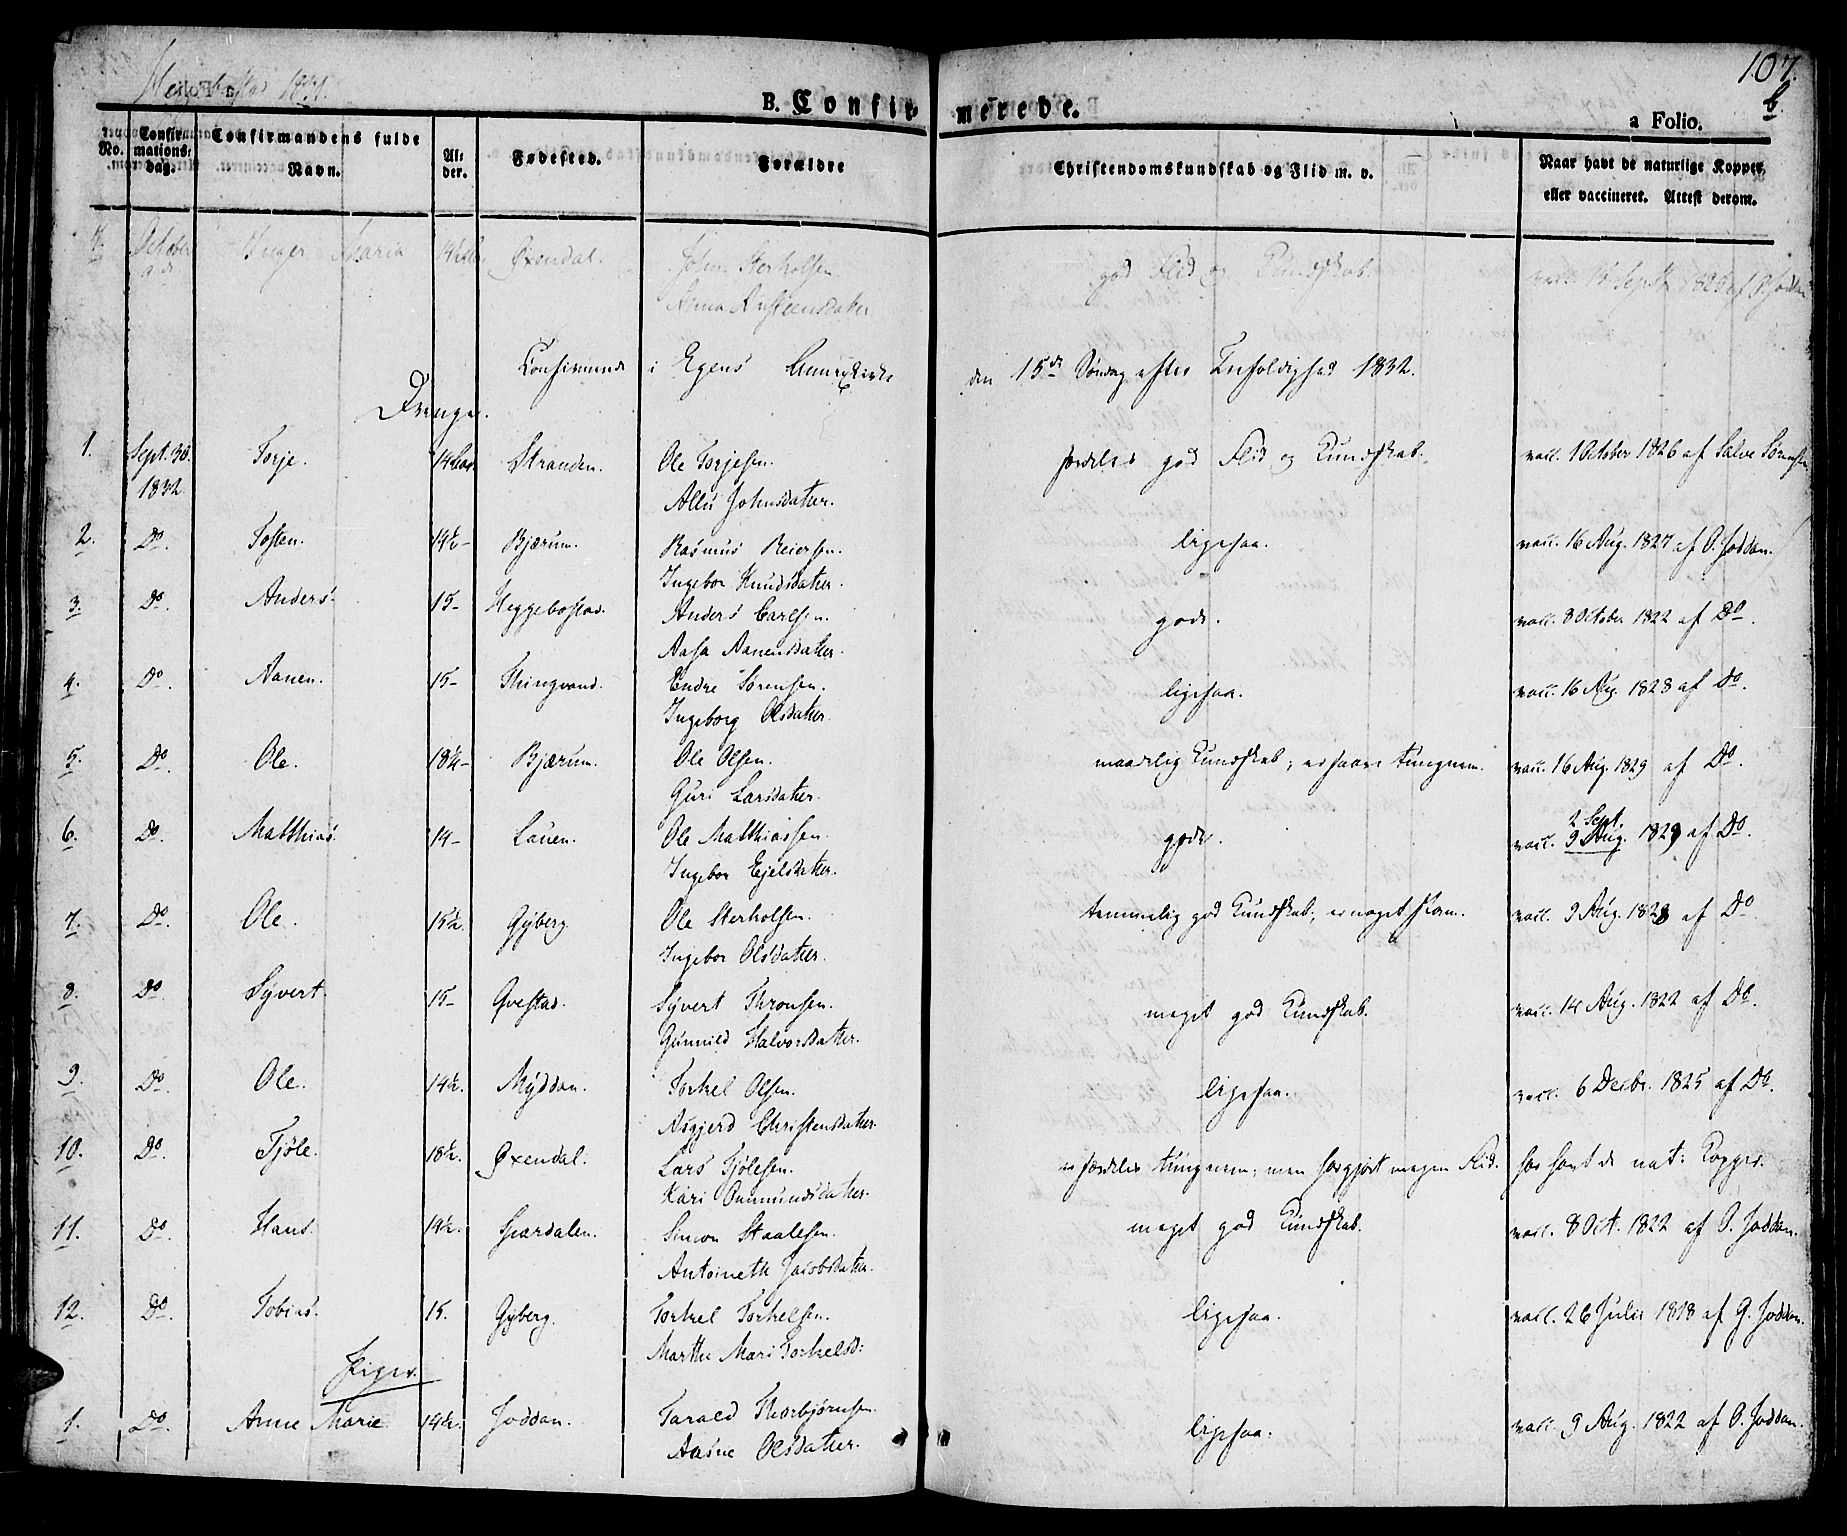 107.
b.
Heggebostad 1831.
B. Confirmerede.
a Folio.
No. Confirmations-dag. Confirmandens fulde Navn. Alder. Fødested. Forældre Christendomskundskab og Flid m. v. Naar havt de naturlige Kopper, eller vaccineret. Attest derom.
4. October 9de Inger Maria 14½ Øxendal. John Sterkolsen god Flid og Kundskab. vacc. 16 Sept. 1826 af O. Joddan
Anna Aufteensdatter
Confirmerede i Egens Annexkirke den 15de Søndag efter Trefoldighed 1832.
Drenge.
1. Sept. 30. Torje. 14 Stranden. Ole Torjesen. særdeles god Flid og Kundskab. vacc. 1 October 1826 af Salve Sørensen
1832 Allis Johnsdatter.
2. Do. Tosten. 14½ - Bjærum. Rasmus Reiersen. ligesaa. vacc. 16 Aug. 1827 af O. Joddan.
Ingebor Knudsdatter.
3. Do. Anders. 15 - Heggebostad. Anders Carlsen. gode. vacc. 8 October 1822 af Do.
Aasa Aanensdatter.
4. Do. Aanen. 15 - Thingvand. Endre Sørensen. ligesaa. vacc. 16 Aug. 1828 af Do.
Ingeborg Olsdatter.
5. Do. Ole. 18¼ - Bjærum. Ole Olsen. maadelig Kundskab; er saare tungnem. vacc. 16 Aug. 1829 af Do.
Guri Larsdatter.
2 Sept.
6. Do. Matthias. 14 - Lauen. Ole Matthiassen. gode. vacc. 9 Aug. 1829 af Do.
Ingebor Ejelsdatter.
7. Do. Ole. 15½. Gyberg. Ole Sterkolsen. temmelig god Kundskab; er noget sløv. vacc. 9 Aug. 1828 af Do.
Ingebor Olsdatter.
8. Do. Syvert. 15 - Qvestad. Syvert Thronsen. meget god Kundskab. vacc. 14 Aug. 1822 af Do.
Gunnild Halvorsdatter.
9. Do. Ole. 14½. Myddan. Torkel Olsen. ligesaa. vacc. 6 Decbr. 1825 af Do.
Asgjerd Christensdatter.
10. Do. Tjøle. 18½. Øxendal. Lars Tjølesen. er særdeles tungnem; men har gjort megen Flid. har havt de nat: Kopper.
Kari Oumundsdatter.
11. Do. Hans. 14½. Gaardalen. Simon Staalesen. meget god Kundskab. vacc. 8 Oct. 1822 af O. Joddan.
Antoineth Jacobsdatter.
12. Do. Tobias. 15. Gyberg. Torkel Torkelsen. ligesaa. vacc. 26 Julii 1818 af G. Joddan.
Marthe Mari Torkelsd:
Piger.
1. Do. Anne Marie 14½. Joddan. Tarald Thorbjørnsen. ligesaa. vacc. 9 Aug. 1822 af O. Joddan.
Aasne Olsdatter.